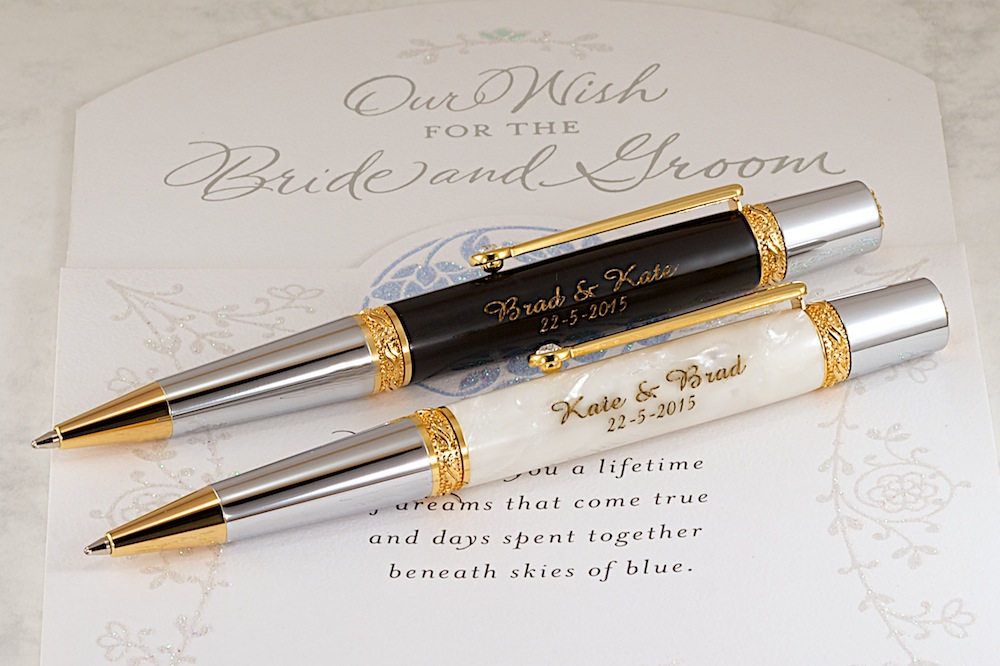 Our Wish
FOR THE
Bride and Groom
Brad & Kate
22-5-2015
Kate & Brad
22-5-2015
you a lifetime
dreams that come true
and days spent together
beneath skies of blue.